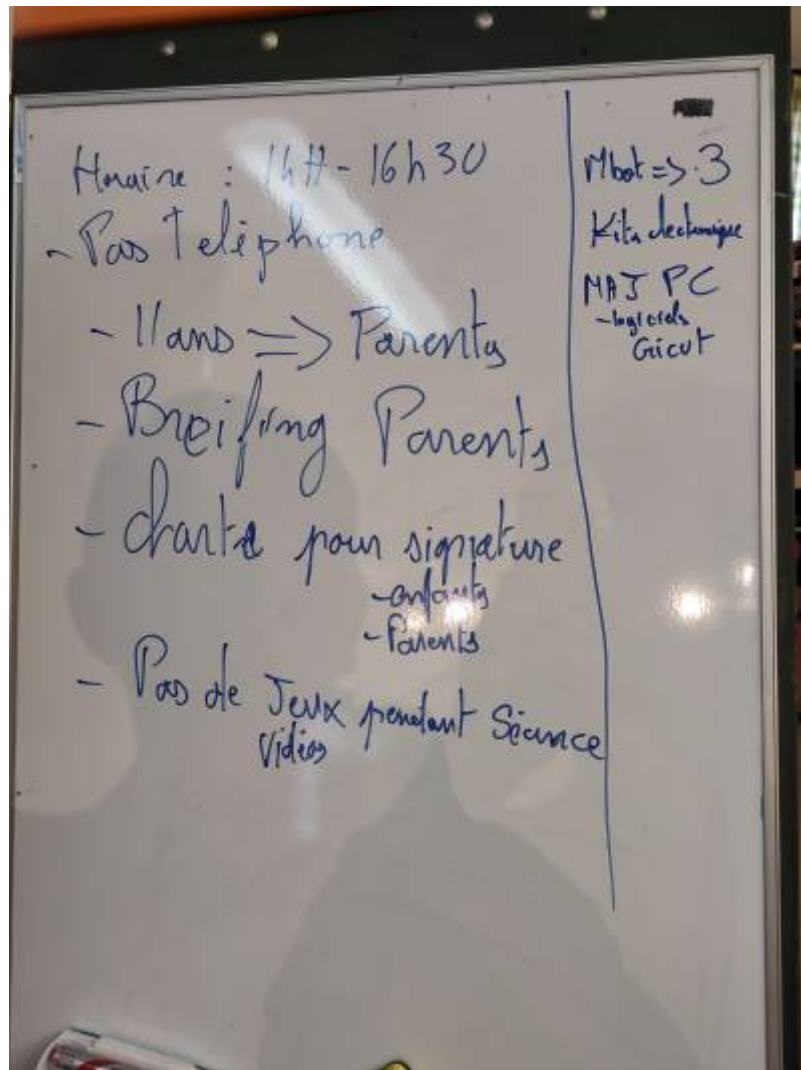 Horaire : 14H - 16h30
- Pas Teléphone
- 11 ans => Parents
- Breifing Parents
- charte pour signature
- enfants
- Parents
- Pas de Jeux pendant Séance
Vidéos
Mbot => 3
Kits electronique
MAJ PC
- logiciels
Gicut